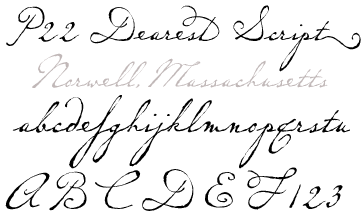 P22 Dearest Script
Norwell, Massachusetts
abcdefghijklmnopqrstu
ABCDEF123